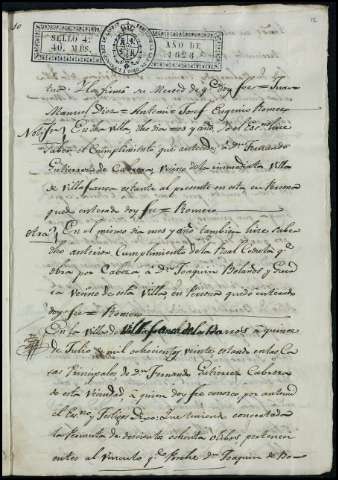 SELLO 4º
40. MRS.
AÑO DE
1820
12
tura. Ylo firmó su Merced de q.e doy fee = Juan
Manuel Diez = Antonio Josef Eugenio Romero
Notif.on En dha villa, dho dia mes y año, Yo el Es.no hice
saber el Cumplimiento que antecede à d.n Fernando
Gutierrez de Cabrera Vecino de la inmediata Villa
de Villafranca estante al presente en esta en Persona
quedo enterado doy fee = Romero
otra En el mismo dia mes y año tambien hice saber
dho anterior Cumplimiento de la Real Cedula q.e
obra por Cabeza à d.n Joaquin Bolaños y Guz
Vecino de esta Villa en Persona quedó enterado
doy fee = Romero
En la villa de Villafranca de los Barros à quince
de Julio de mil ochocientos y veinte estando en las Ca
sas Principales de d.n Fernando Gutierrez Cabrera
de esta Vecindad, à quien doy fee conozco por antemi
el Es.no y Testigos Dijo: Que teniendo concertada
la Permuta de doscientos ochenta olibos perteneci
entes al vinculo q.e Posehe d.n Joaquin de Bo-